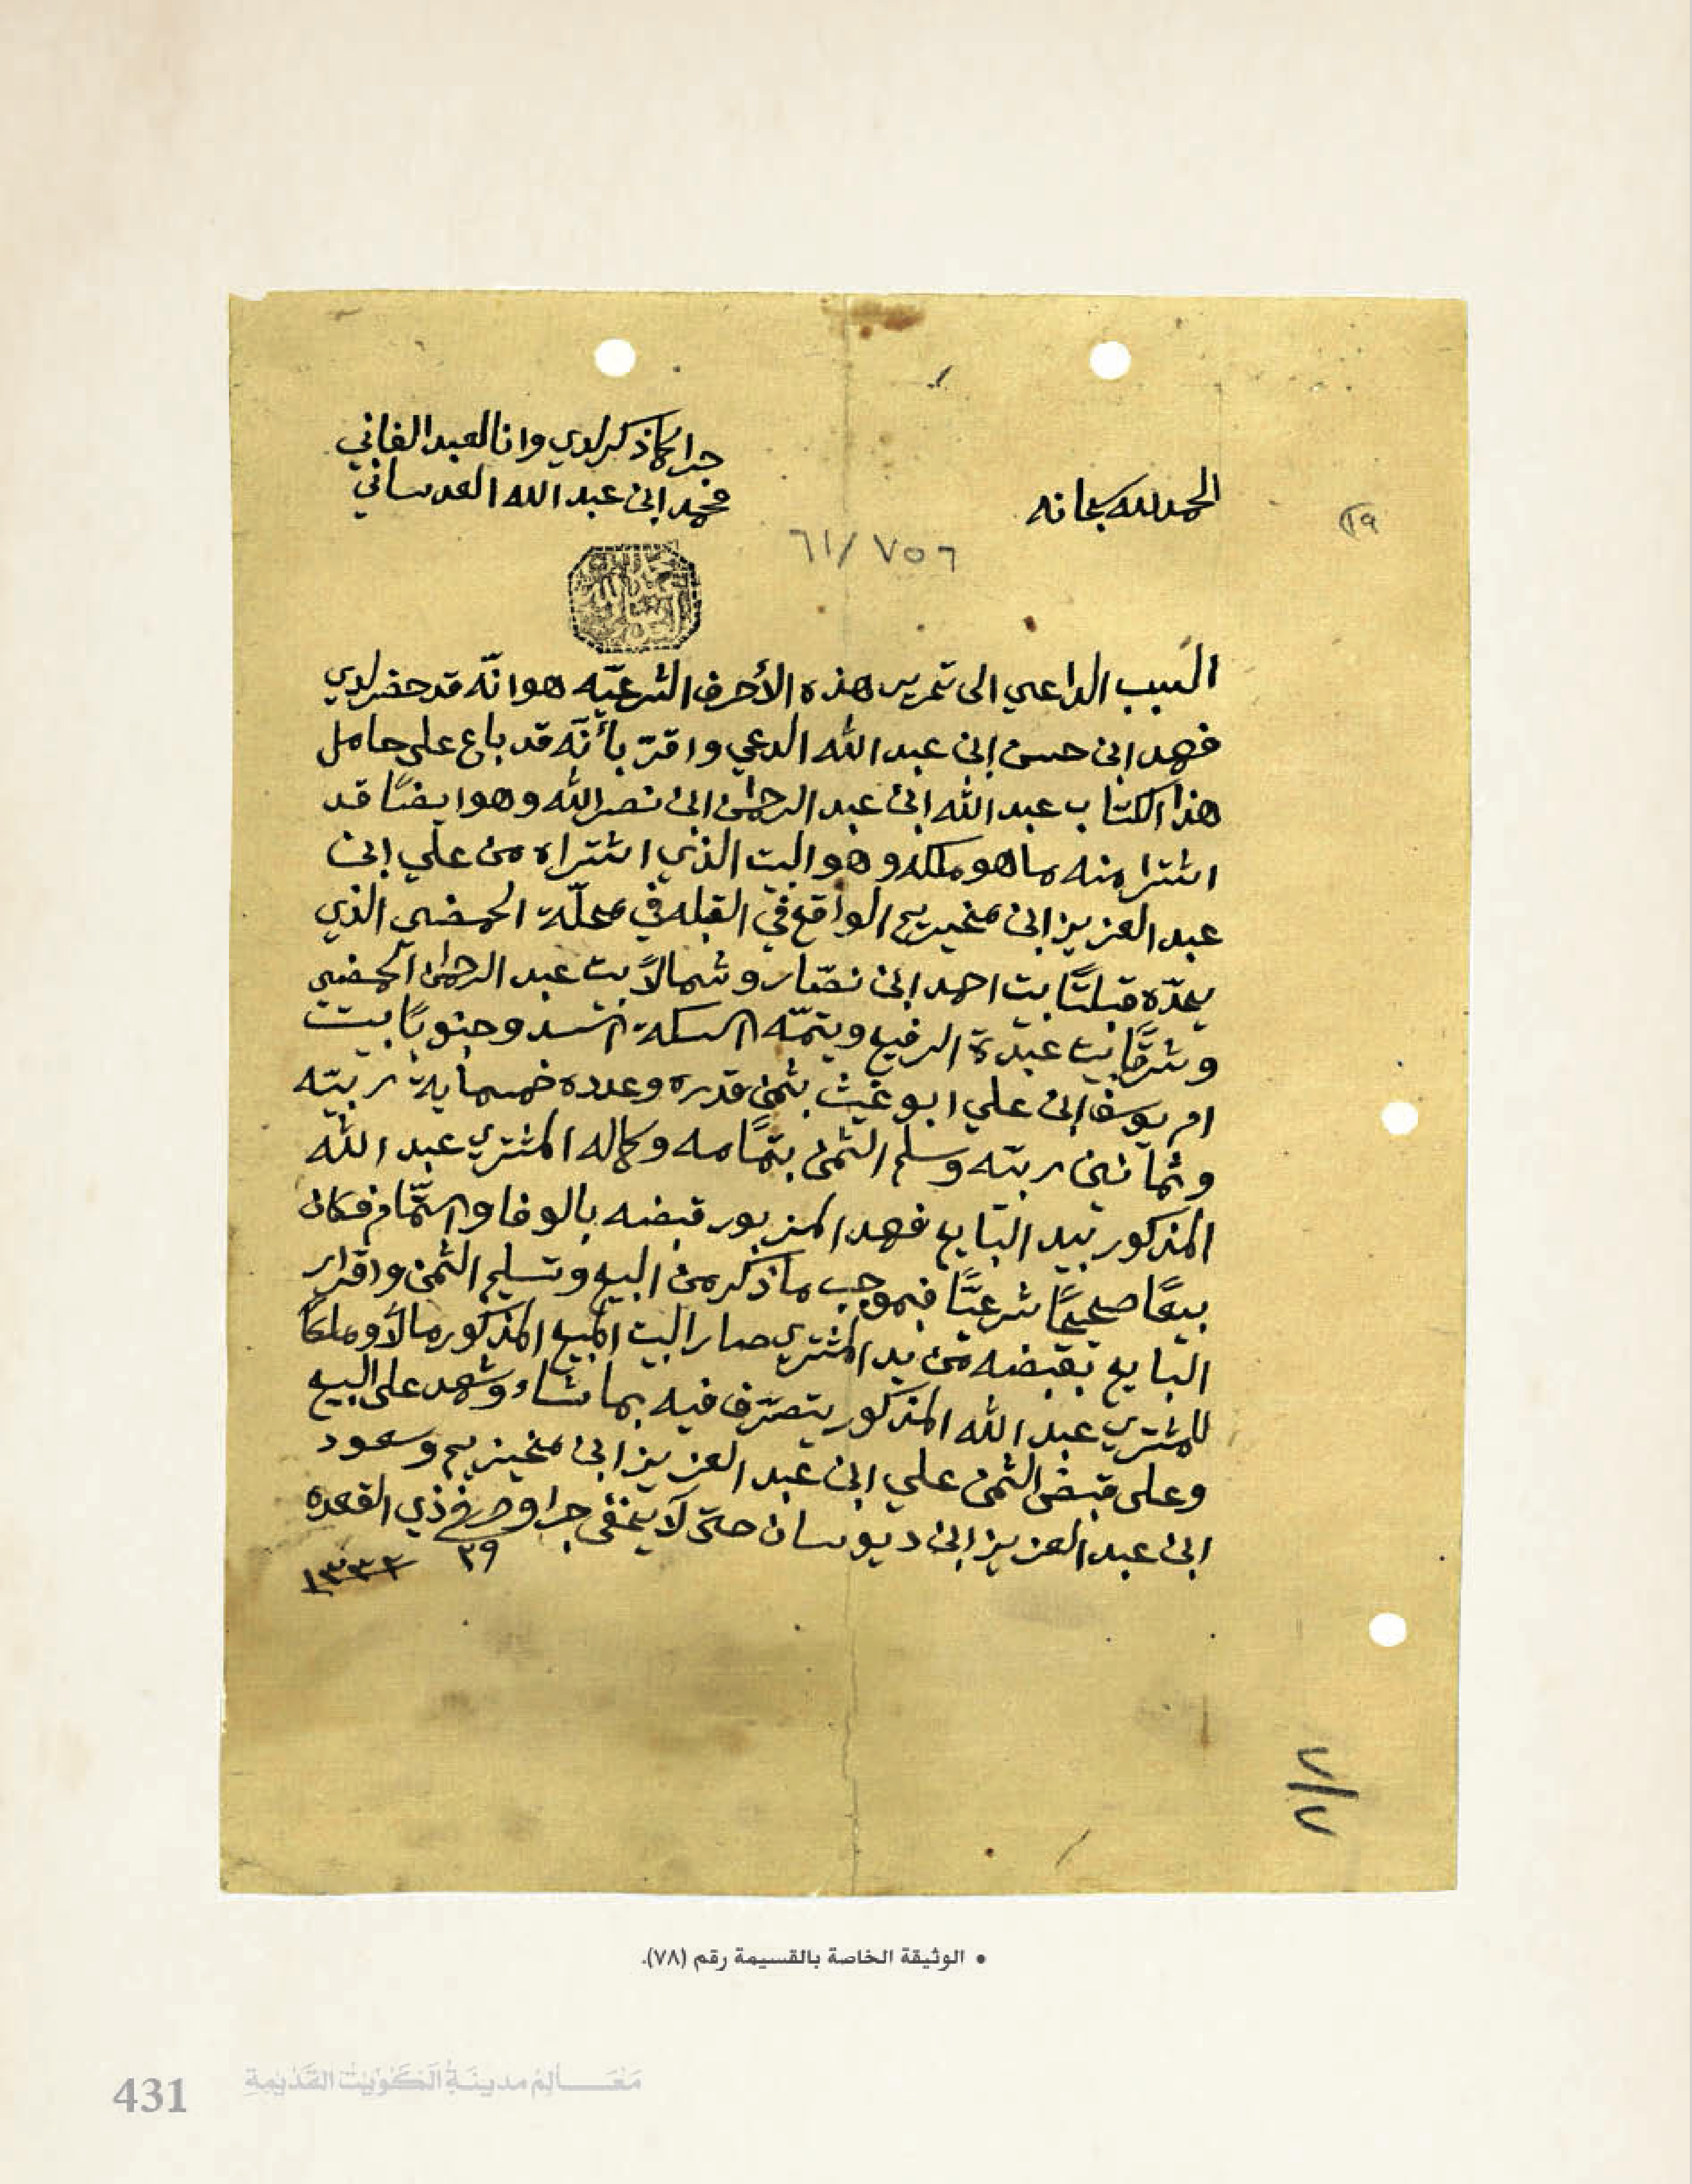 الحمد لله سبحانه
جرا كما ذكر لدي وانا العبد الفاني
محمد ابن عبد الله العدساني
٦١/٧٥٦
السبب الداعي الى تحرير هذه الأحرف الشرعيّه هو انّه قد حضر لدي
فهد ابن حسن ابن عبد الله الدعي واقرّ بأنّه قد باع على حامل
هذا الكتاب عبد الله ابن عبد الرحمن ابن نصر الله وهو ايضًا قد
اشترا منه ما هو ملكه وهو البيت الذي اشتراه من علي ابن
عبد العزيز ابن مخيريم الواقع في القبله في محلّة الحمضي الذي
يحدّه قبلتًا بيت احمد ابن نصّار وشمالًا بيت عبد الرحمن الحمضي
وشرقًا بيت عبدة الرفيع ويتمّه السكة السد وجنوبًا بيت
ام يوسف ابن علي ابو غيث بثمن قدره وعدده خمسماية ربيّه
وثمانين ربيّه وسلم الثمن بتمامه وكماله المشتري عبد الله
المذكور بيد البايع فهد المزبور قبضه بالوفا والتّمام فكان
بيعًا صحيحًا شرعيًّا فبموجب ما ذكر من البيع وتسليم الثمن واقرار
البايع بقبضه من يد المشتري صار البيت المبيع المذكور مالًا وملكًا
للمشتري عبد الله المذكور يتصرّف فيه بما شاء وشهد على البيع
وعلى قبض الثمن علي ابن عبد العزيز ابن مخيزيم وسعود
ابن عبد العزيز ابن ديوسان حتى لا يخفى جرا وحرر في ذي القعده
٢٩ ١٣٣٢
٧/٧
• الوثيقة الخاصة بالقسيمة رقم (٧٨).
431 مَعَالِمُ مدينَةِ الكُوَيْت القَدْيمَةِ